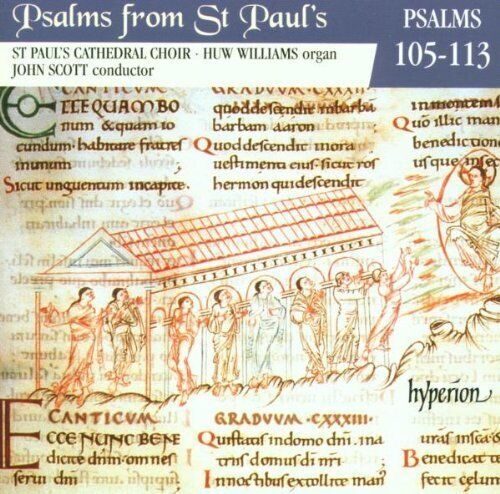 Psalms from St Paul's
ST PAUL'S CATHEDRAL CHOIR · HUW WILLIAMS organ
JOHN SCOTT conductor
PSALMS
105-113
ECCE QUAM BO
num & quam io
cundum habitare fratres
in unum
Sicut unguentum in capite.
quod descendit in barba
barbam aaron
Quod descendit in ora
vestimenti eius. sicut ros
hermon qui descendit
in montem
Quo illic man
benedictionem
usque in sec
hyperion
CANTICUM
ECCE NUNC BENE
dicite dnm. omnes
servi dni
GRADUUM · CXXXIII ·
Qui statis in domo dni. in a
triis domus di nri
In noctibus extollite man
Benedicat te
fecit celum